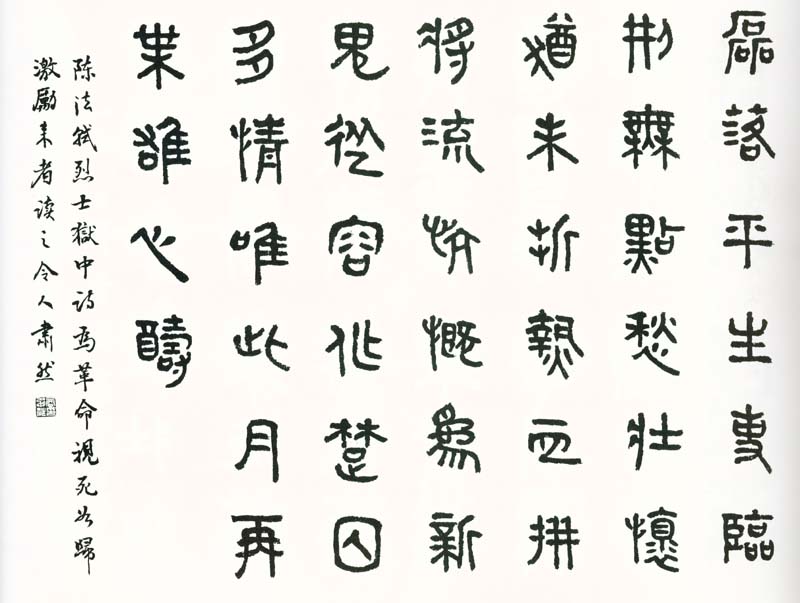 磊落平生事臨
刑無點愁壯懷
猶未折熱血拼
將流慷慨為新
鬼從容作楚囚
多情唯此月再
業雄心醻
陈法轼烈士獄中诗為革命視死如歸
激勵来者读之令人肅然